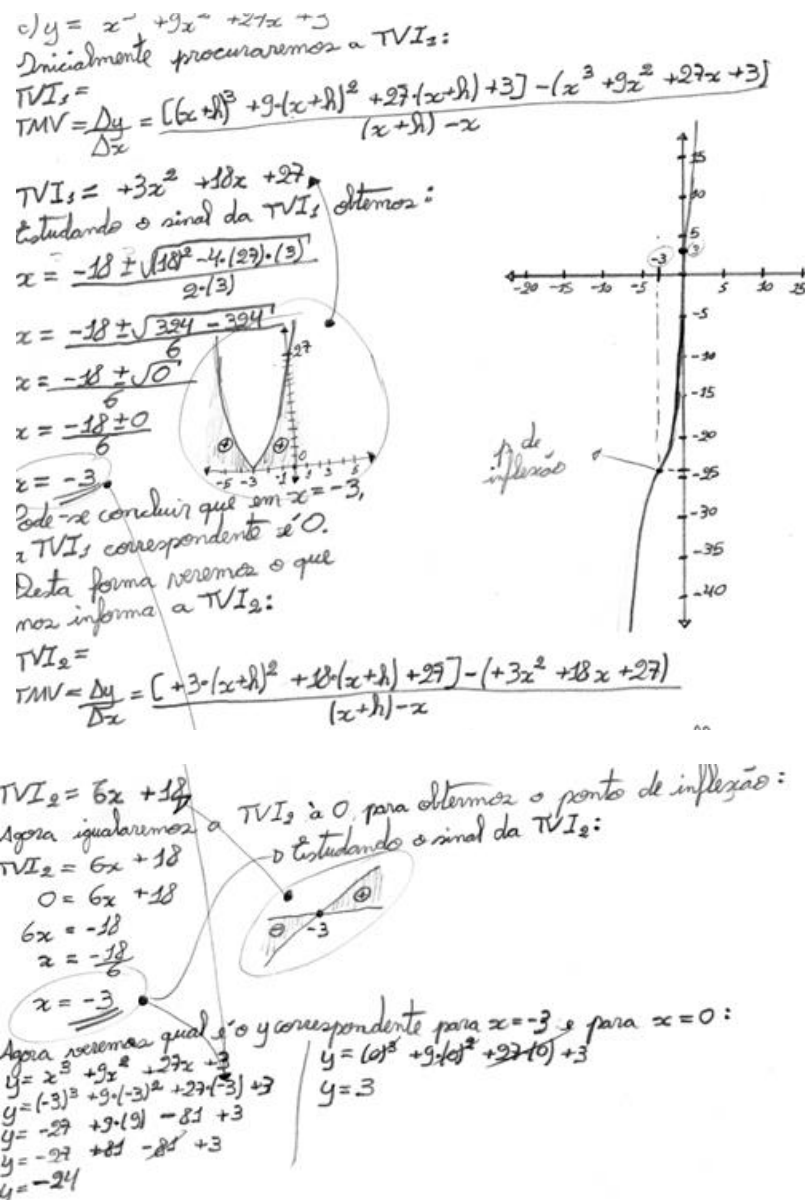 c) y = x³ + 9x² + 27x + 3
Inicialmente procuraremos a TVI₁:
TVI₁ =
TMV = Δy/Δx = [(x+h)³ + 9·(x+h)² + 27·(x+h) + 3] - (x³ + 9x² + 27x + 3) / (x+h) - x
TVI₁ = +3x² + 18x + 27
Estudando o sinal da TVI₁ obtemos:
x = -18 ± √(18)² - 4·(27)·(3) / 2·(3)
x = -18 ± √324 - 324 / 6
x = -18 ± √0 / 6
x = -18 ± 0 / 6
x = -3
27
⊕ ⊕
-5 -3 -1 0 1 3 5
Pode-se concluir que em x = -3,
a TVI₁ correspondente é 0.
Desta forma veremos o que
nos informa a TVI₂:
TVI₂ =
TMV = Δy/Δx = [+3·(x+h)² + 18·(x+h) + 27] - (+3x² + 18x + 27) / (x+h) - x
15
10
5
-3 3
-20 -15 -10 -5 5 10 15
-5
-10
-15
-20
-25
-30
-35
-40
p. de
inflexão
TVI₂ = 6x + 18
Agora igualaremos a TVI₂ à 0 para obtermos o ponto de inflexão:
TVI₂ = 6x + 18
Estudando o sinal da TVI₂:
0 = 6x + 18
6x = -18
x = -18/6
x = -3
⊖ -3 ⊕
Agora veremos qual é o y correspondente para x = -3 e para x = 0:
y = x³ + 9x² + 27x + 3
y = (-3)³ + 9·(-3)² + 27·(-3) + 3
y = -27 + 9·(9) - 81 + 3
y = -27 + 81 - 81 + 3
y = -24
y = (0)³ + 9·(0)² + 27·(0) + 3
y = 3